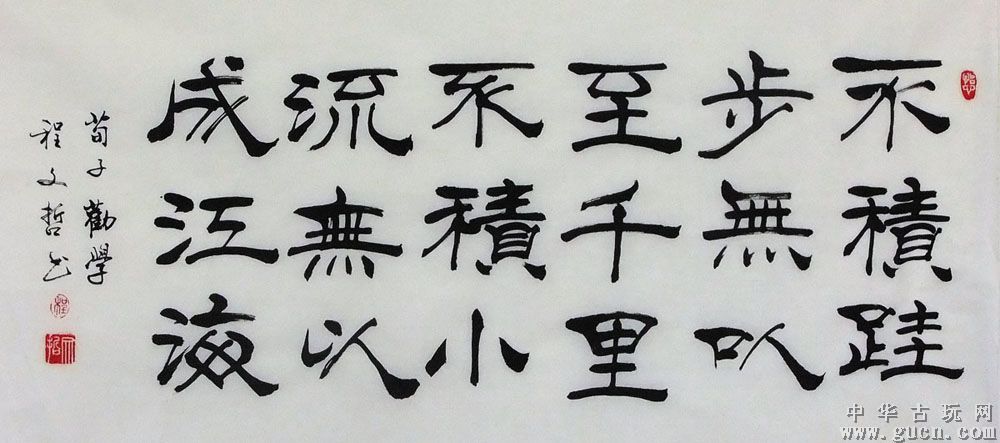 不積跬
步無以
至千里
不積小
流無以
成江海
荀子勸學
程文哲书
中华古玩网
www.gucn.com